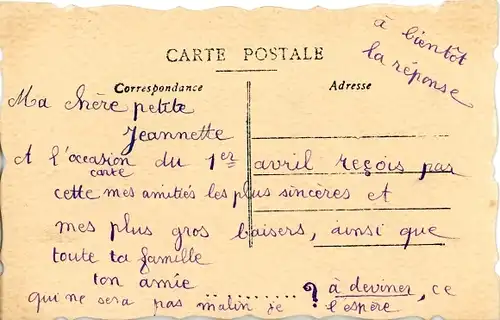 à bientôt
la réponse
CARTE POSTALE
Correspondance
Adresse
Ma chère petite
Jeannette
A l'occasion du 1er avril reçois par
carte
cette mes amitiés les plus sincères et
mes plus gros baisers, ainsi que
toute ta famille
ton amie
.......... ? à deviner, ce
qui ne sera pas malin je l'espère